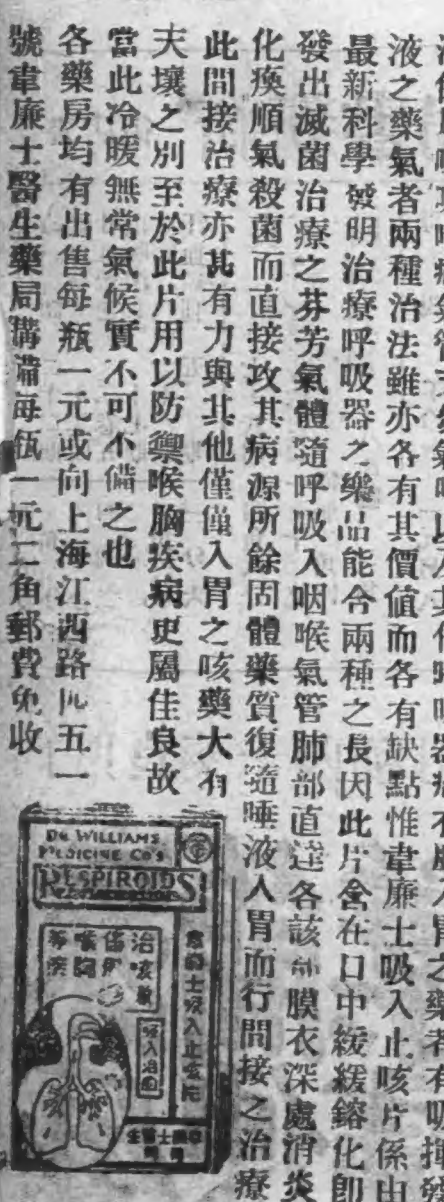 液之藥氣者兩種治法雖亦各有其價值而各有缺點惟韋廉士吸入止咳片係由
最新科學發明治療呼吸器之藥品能合兩種之長因此片含在口中緩緩鎔化卽
發出滅菌治療之芬芳氣體隨呼吸入咽喉氣管肺部直達各該部膜衣深處消炎
化痰順氣殺菌而直接攻其病源所餘固體藥質復隨唾液入胃而行間接之治療
此間接治療亦甚有力與其他僅僅入胃之咳藥大有
天壤之別至於此片用以防禦喉胸疾病更屬佳良故
當此冷暖無常氣候實不可不備之也
各藥房均有出售每瓶一元或向上海江西路四五一
號韋廉士醫生藥局購 每瓶一元二角郵費免收
DR. WILLIAMS
MEDICINE CO'S
RESPIROIDS
韋廉士吸入止咳片
治咳嗽
傷風
喉胸
等疾
吸入治